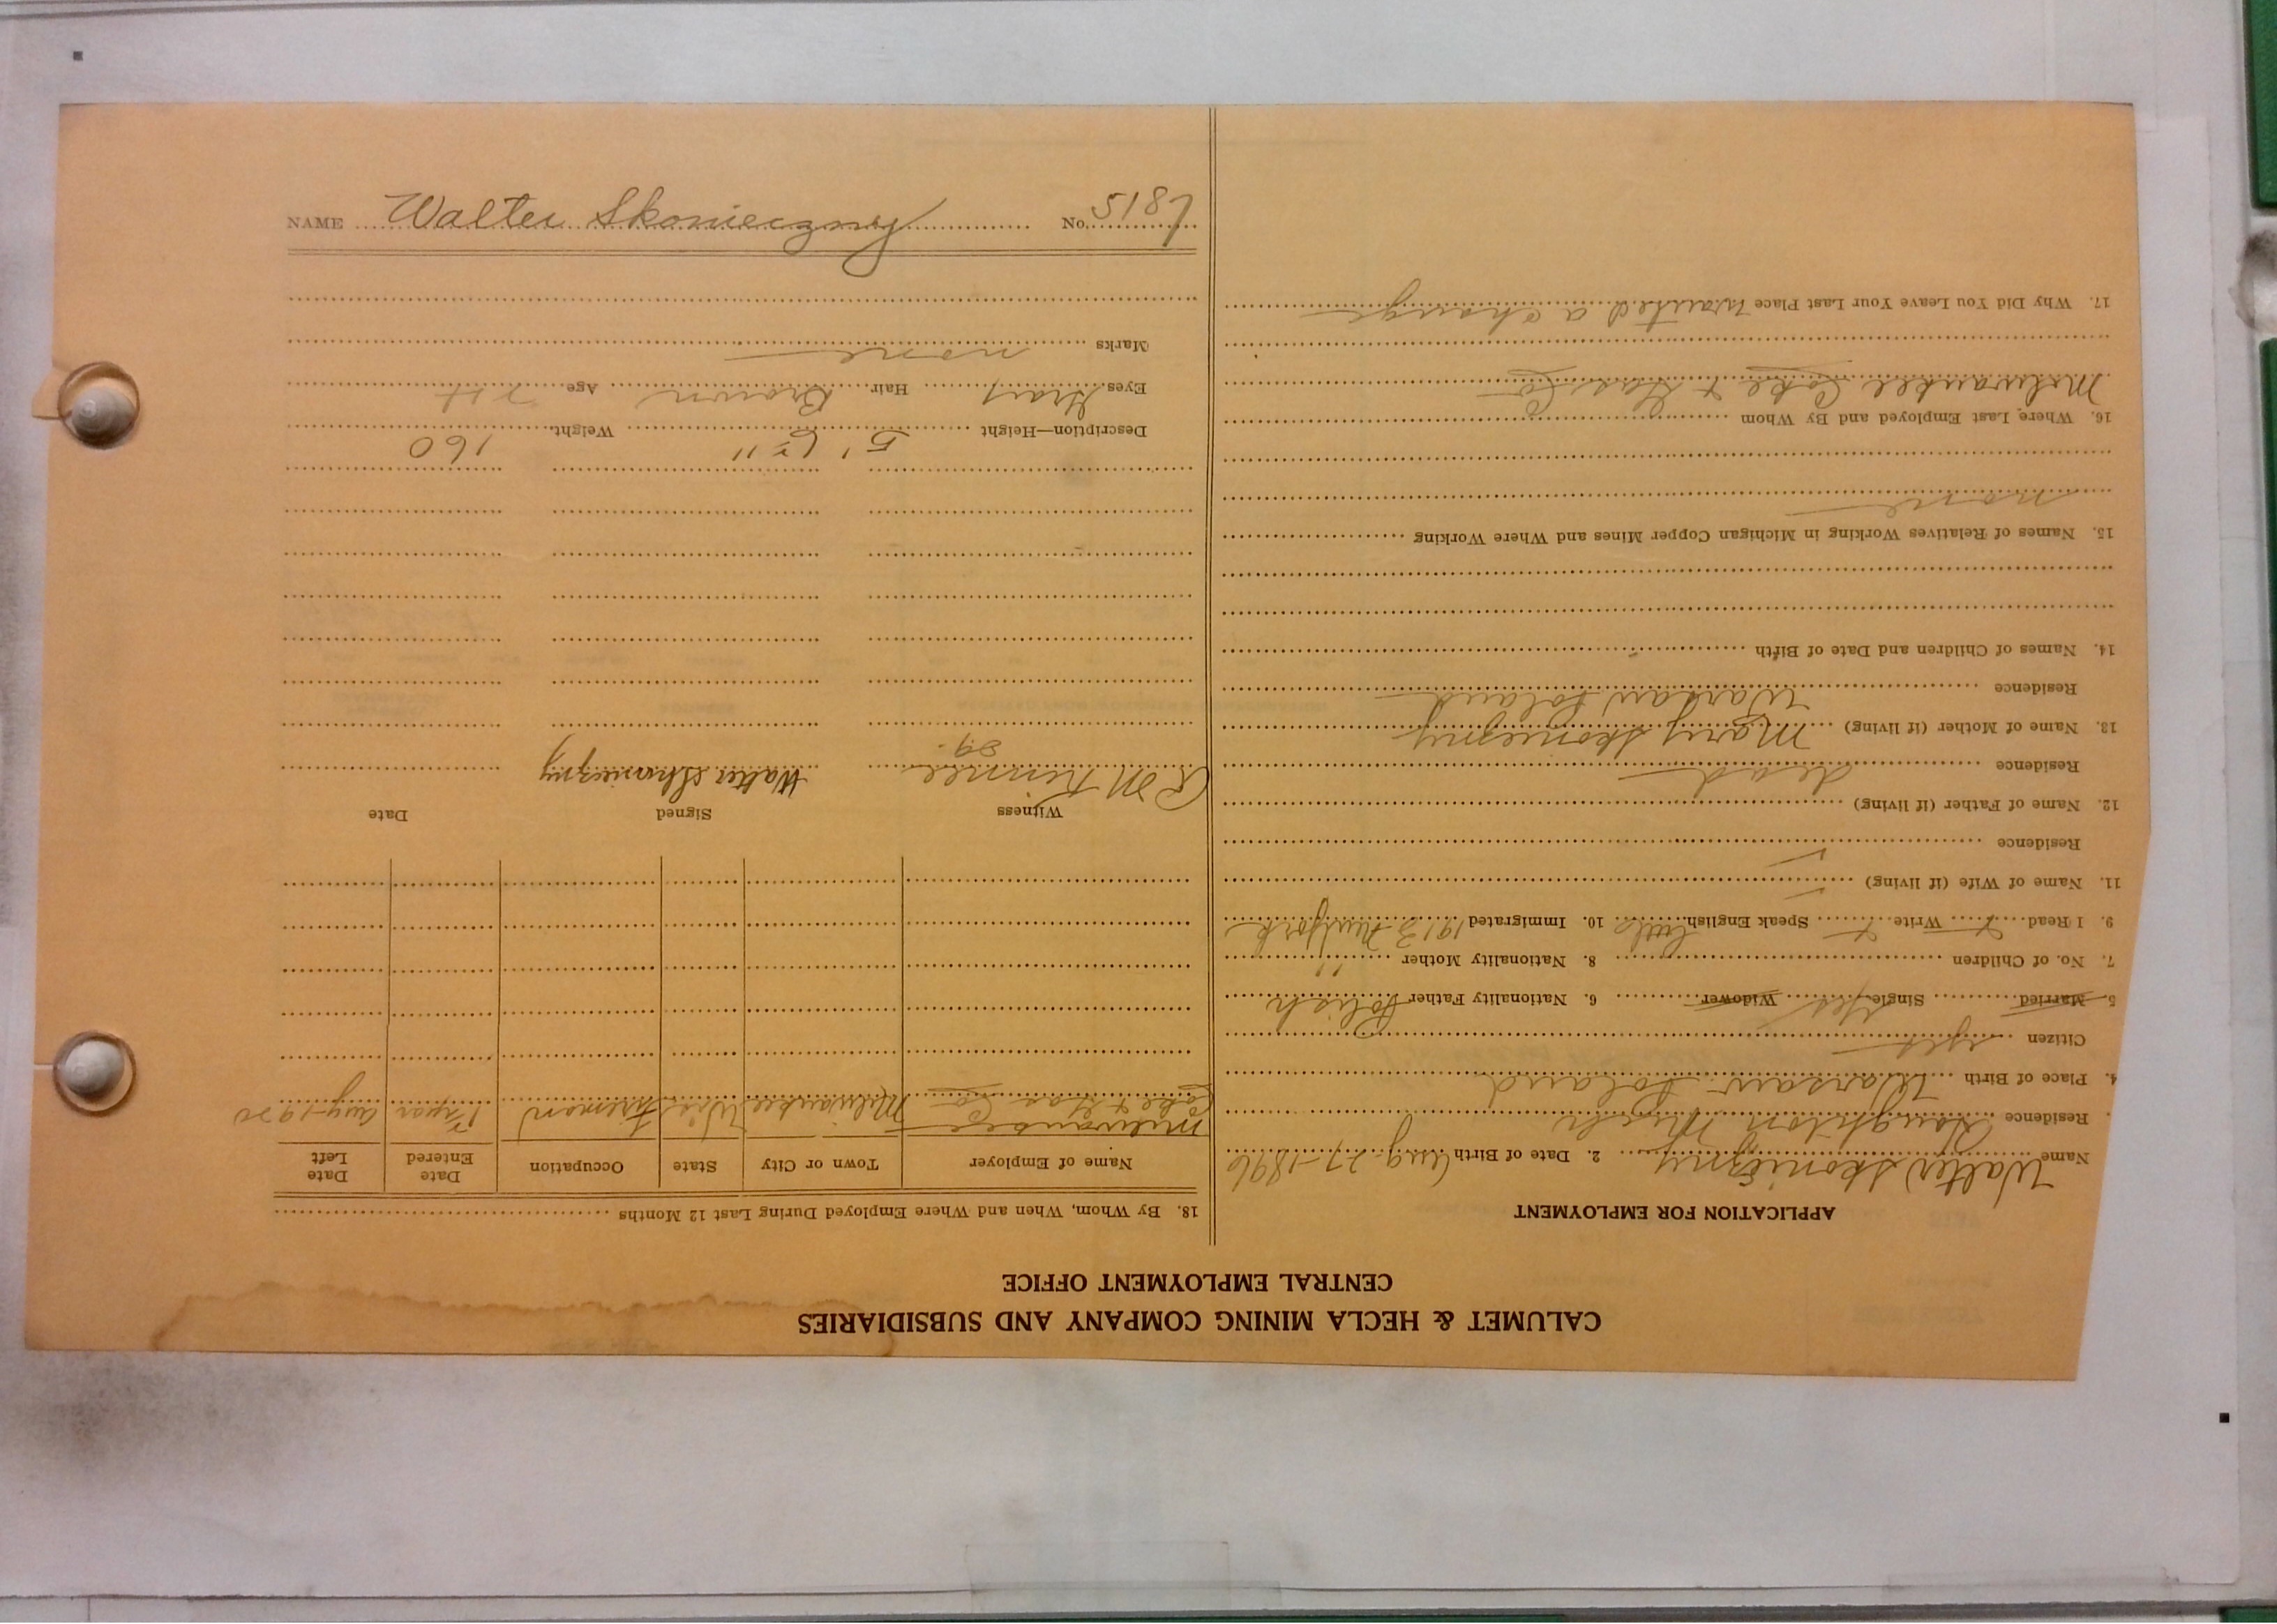 CALUMET & HECLA MINING COMPANY AND SUBSIDIARIES
CENTRAL EMPLOYMENT OFFICE
APPLICATION FOR EMPLOYMENT
Name Walter Skoniezny 2. Date of Birth Aug-27-1896
Residence Houghton Mich
4. Place of Birth Warsaw Poland
Citizen
5 Married Single Yes Widower 6. Nationality Father Polish
7. No. of Children 8. Nationality Mother "
9. I Read + Write + Speak English little 10. Immigrated 1913 New York
11. Name of Wife (if living)
Residence
12. Name of Father (if living)
Residence dead
13. Name of Mother (if living) Mary Skoniezny
Residence Warsaw Poland
14. Names of Children and Date of Birth
15. Names of Relatives Working in Michigan Copper Mines and Where Working
none
16. Where Last Employed and By Whom
Milwaukee Coke & Gas Co
17. Why Did You Leave Your Last Place wanted a change
18. By Whom, When and Where Employed During Last 12 Months
Name of Employer Town or City State Occupation Date Entered Date Left
Milwaukee
Coke & Gas Co Milwaukee Wis Fireman Aug-1920
Witness Signed Date
Walter Skonieczny
Description—Height 5' Weight 160
Eyes Gray Hair Brown Age 24
Marks none
NAME Walter Skonieczny No. 5187